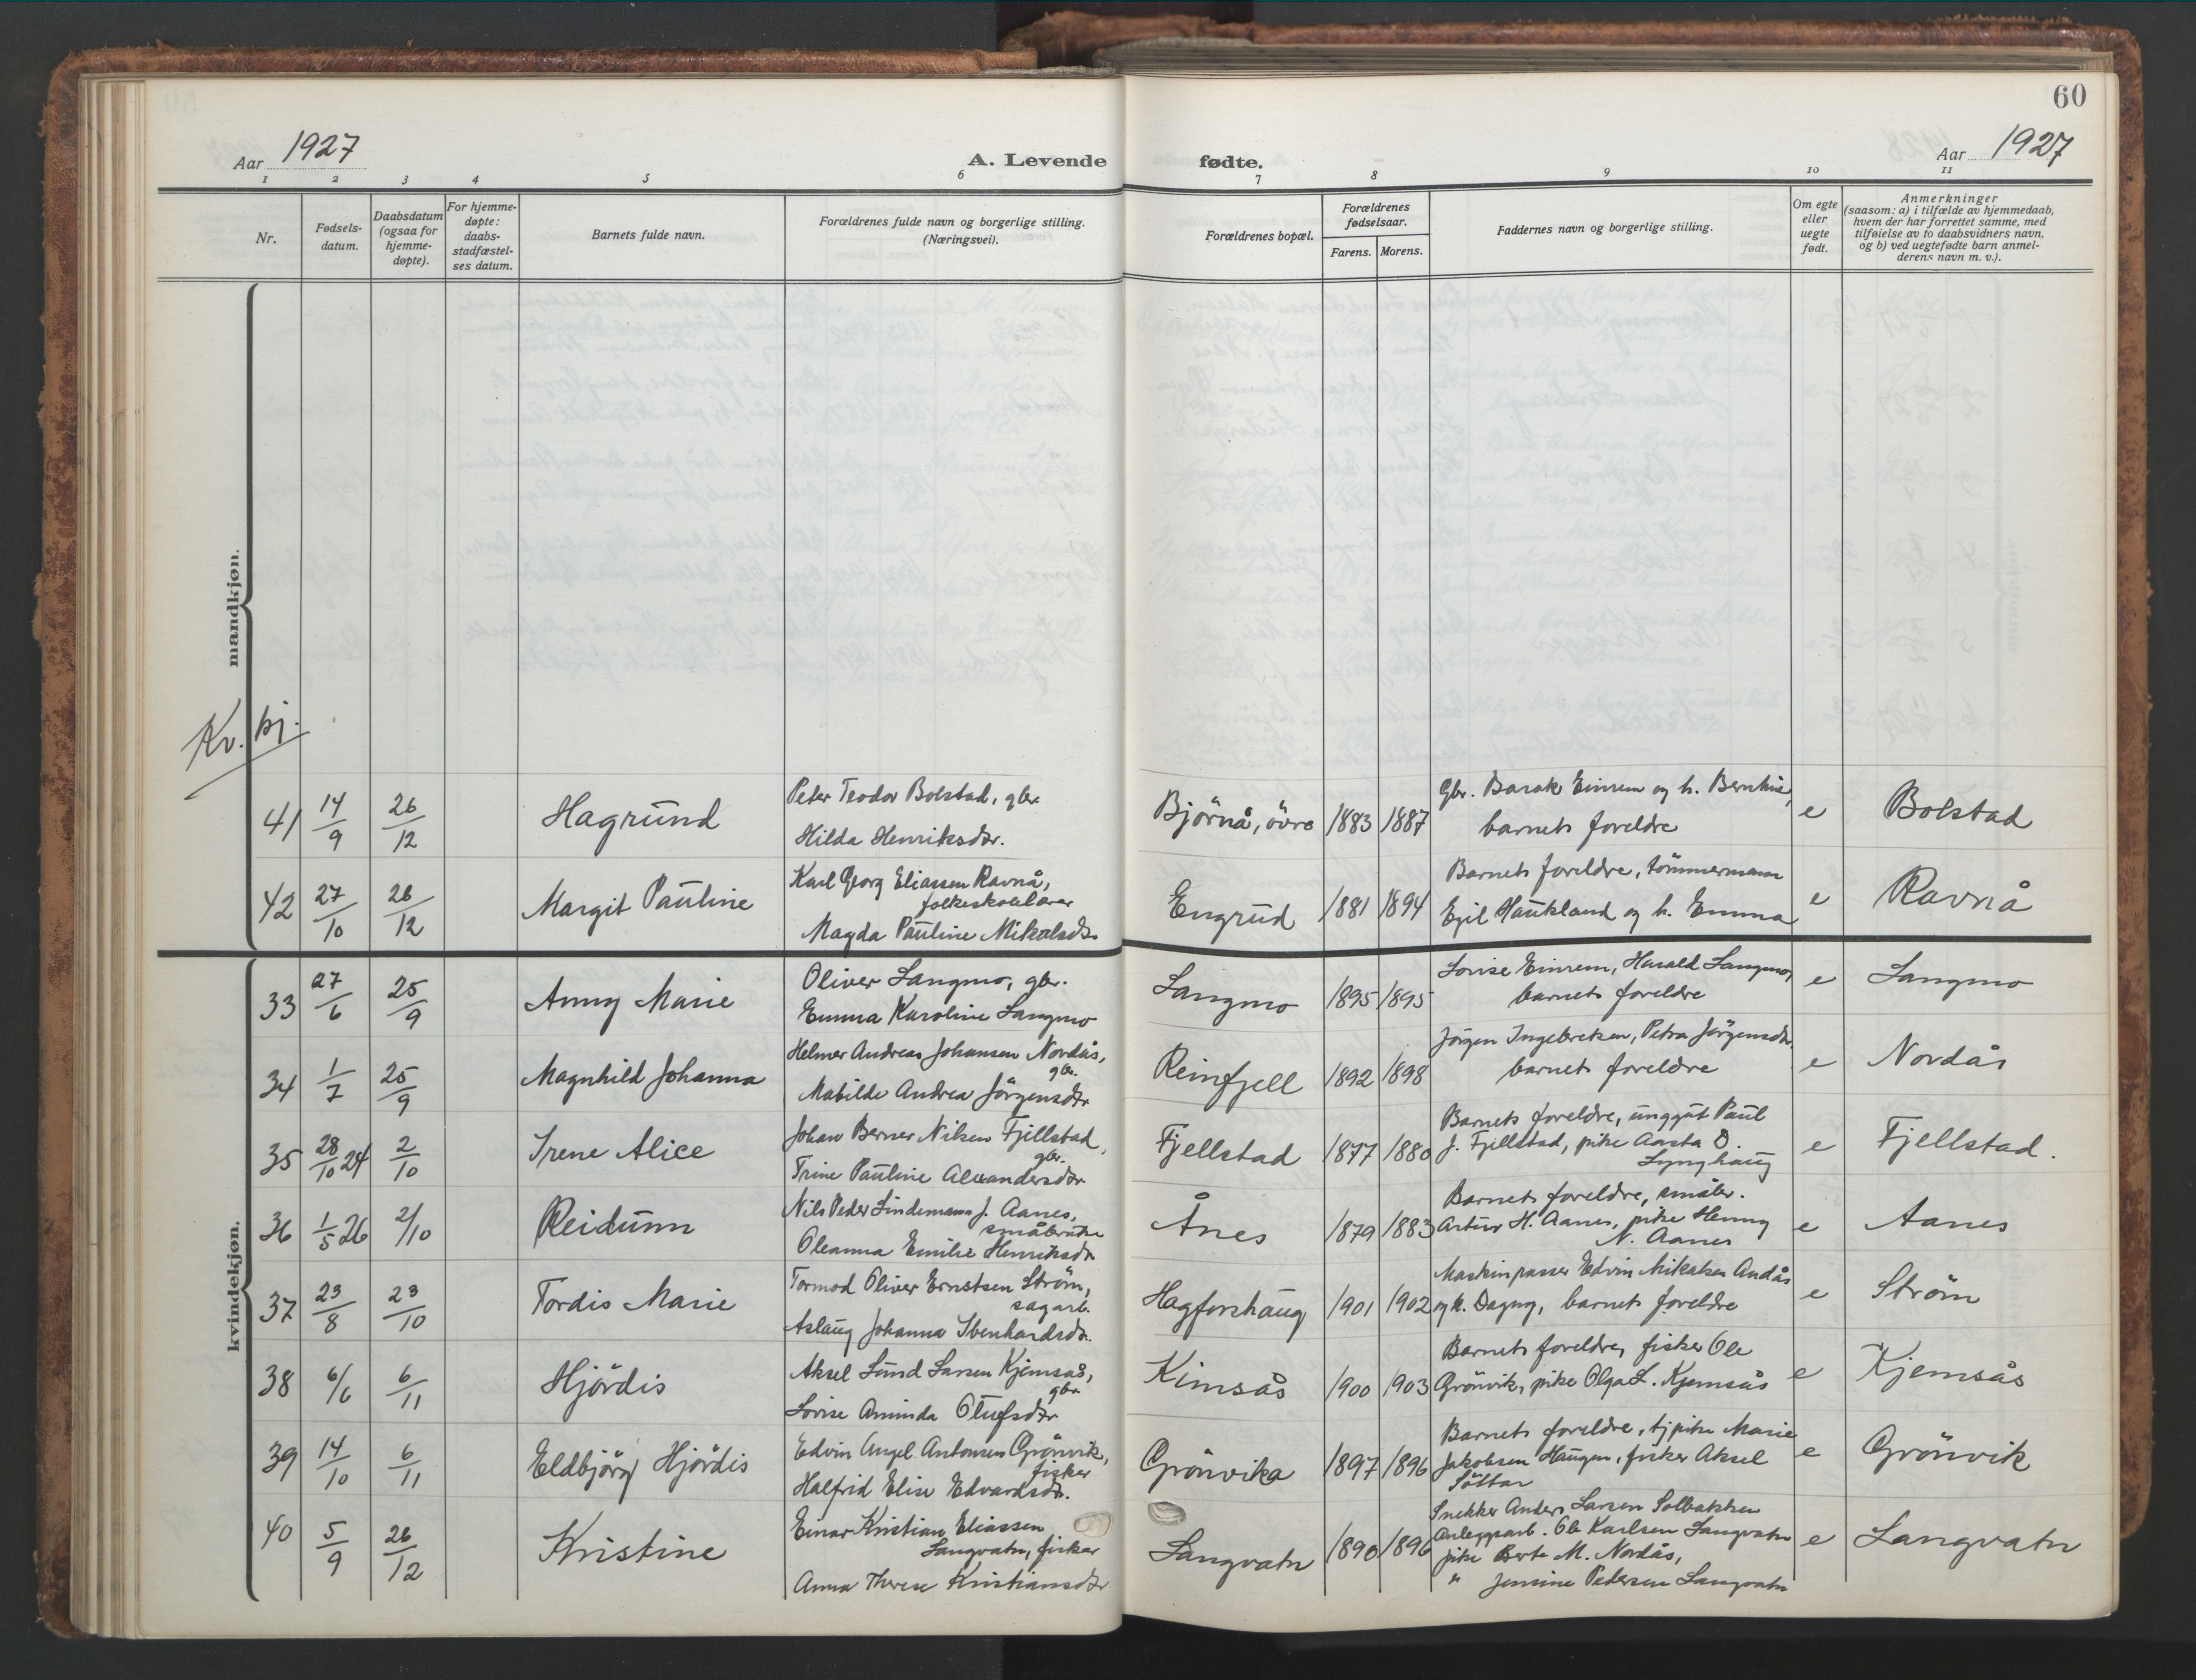 60
Aar 1927
A. Levende fødte.
Aar 1927
1 2 3 4 5 6 7 8 9 10 11
Nr.
Fødsels-
datum.
Daabsdatum
(ogsaa for
hjemme-
døpte).
For hjemme-
døpte:
daabs-
stadfæstel-
ses datum.
Barnets fulde navn.
Forældrenes fulde navn og borgerlige stilling.
(Næringsvei).
Forældrenes bopæl.
Forældrenes
fødselsaar.
Farens. Morens.
Faddernes navn og borgerlige stilling.
Om egte
eller
uegte
født.
Anmerkninger
(saasom: a) i tilfælde av hjemmedaab,
hvem der har forrettet samme, med
tilføielse av to daabsvidners navn,
og b) ved uegtefødte barn anmel-
derens navn m. v.).
mandkjøn.
Kv. kj.
41 14/9 26/12 Hagrund
Peter Teodor Bolstad, gbr.
Hilda Henriksdtr.
Björnå, övre 1883 1887
Gbr. Barak Einrem og h. Berntine,
barnets foreldre
e Bolstad
42 27/10 26/12 Margit Pauline
Karl Georg Eliassen Ravnå,
folkeskolelærer
Magda Pauline Mikalsdtr.
Engrud 1881 1894
Barnets foreldre, tömmermann
Egil Haukland og h. Emma
e Ravnå
kvindekjøn.
33 27/6 25/9 Anny Marie
Oliver Langmo, gbr.
Emma Karoline Langmo
Langmo 1895 1895
Lovise Einrem, Harald Langmo,
barnets foreldre
e Langmo
34 1/7 25/9 Magnhild Johanna
Helmer Andreas Johansen Nordås,
gbr.
Matilde Andrea Jörgensdtr
Reinfjell 1892 1898
Jörgen Ingebretsen, Petra Jörgensdtr.
barnets foreldre
e Nordås
35 28/10 24 2/10 Irene Alice
Johan Berner Nilsen Fjellstad,
gbr.
Trine Pauline Alexandersdtr
Fjellstad 1877 1880
Barnets foreldre, unggut Paul
J. Fjellstad, pike Aasta D.
Lynghaug
e Fjellstad.
36 1/5 26 2/10 Reidunn
Nils Peder Lindemann J. Aanes,
småbruker
Oleanna Emilie Henriksdtr
Ånes 1879 1883
Barnets foreldre, småbr.
Artur H. Aanes, pike Henny
N. Aanes
e Aanes
37 23/8 23/10 Tordis Marie
Tormod Oliver Ernstsen Ström,
sagarb.
Aslaug Johanna Ibenhardsdtr.
Hagforshaug 1901 1902
Maskinpasser Edvin Mikalsen Andås
og h. Dagny, barnets foreldre
e Ström
38 6/6 6/11 Hjördis
Aksel Lund Larsen Kjemsås,
gbr.
Lovise Aminda Olufsdtr
Kimsås 1900 1903
Barnets foreldre, fisker Ole
Grönvik, pike Olga L. Kjemsås
e Kjemsås
39 14/10 6/11 Eldbjörg Hjördis
Edvin Angel Antonsen Grönvik,
fisker
Halfrid Elise Edvardsdtr.
Grönvika 1897 1896
Barnets foreldre, tj.pike Marie
Jakobsen Haugen, fisker Aksel
e Grönvik
40 5/9 26/12 Kristine
Einar Kristian Eliassen
Langvatn, fisker
Anna Therese Kristiansdtr
Langvatn 1890 1896
Snekker Anders Larsen Solbakken
Anleggsarb. Ole Karlsen Langvatn
pike Berte M. Nordås,
" Jensine Pedersen Langvatn
e Langvatn